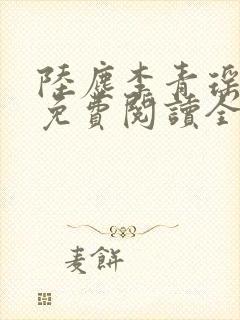 陸塵李青瑤
免費閱讀全
麦餅